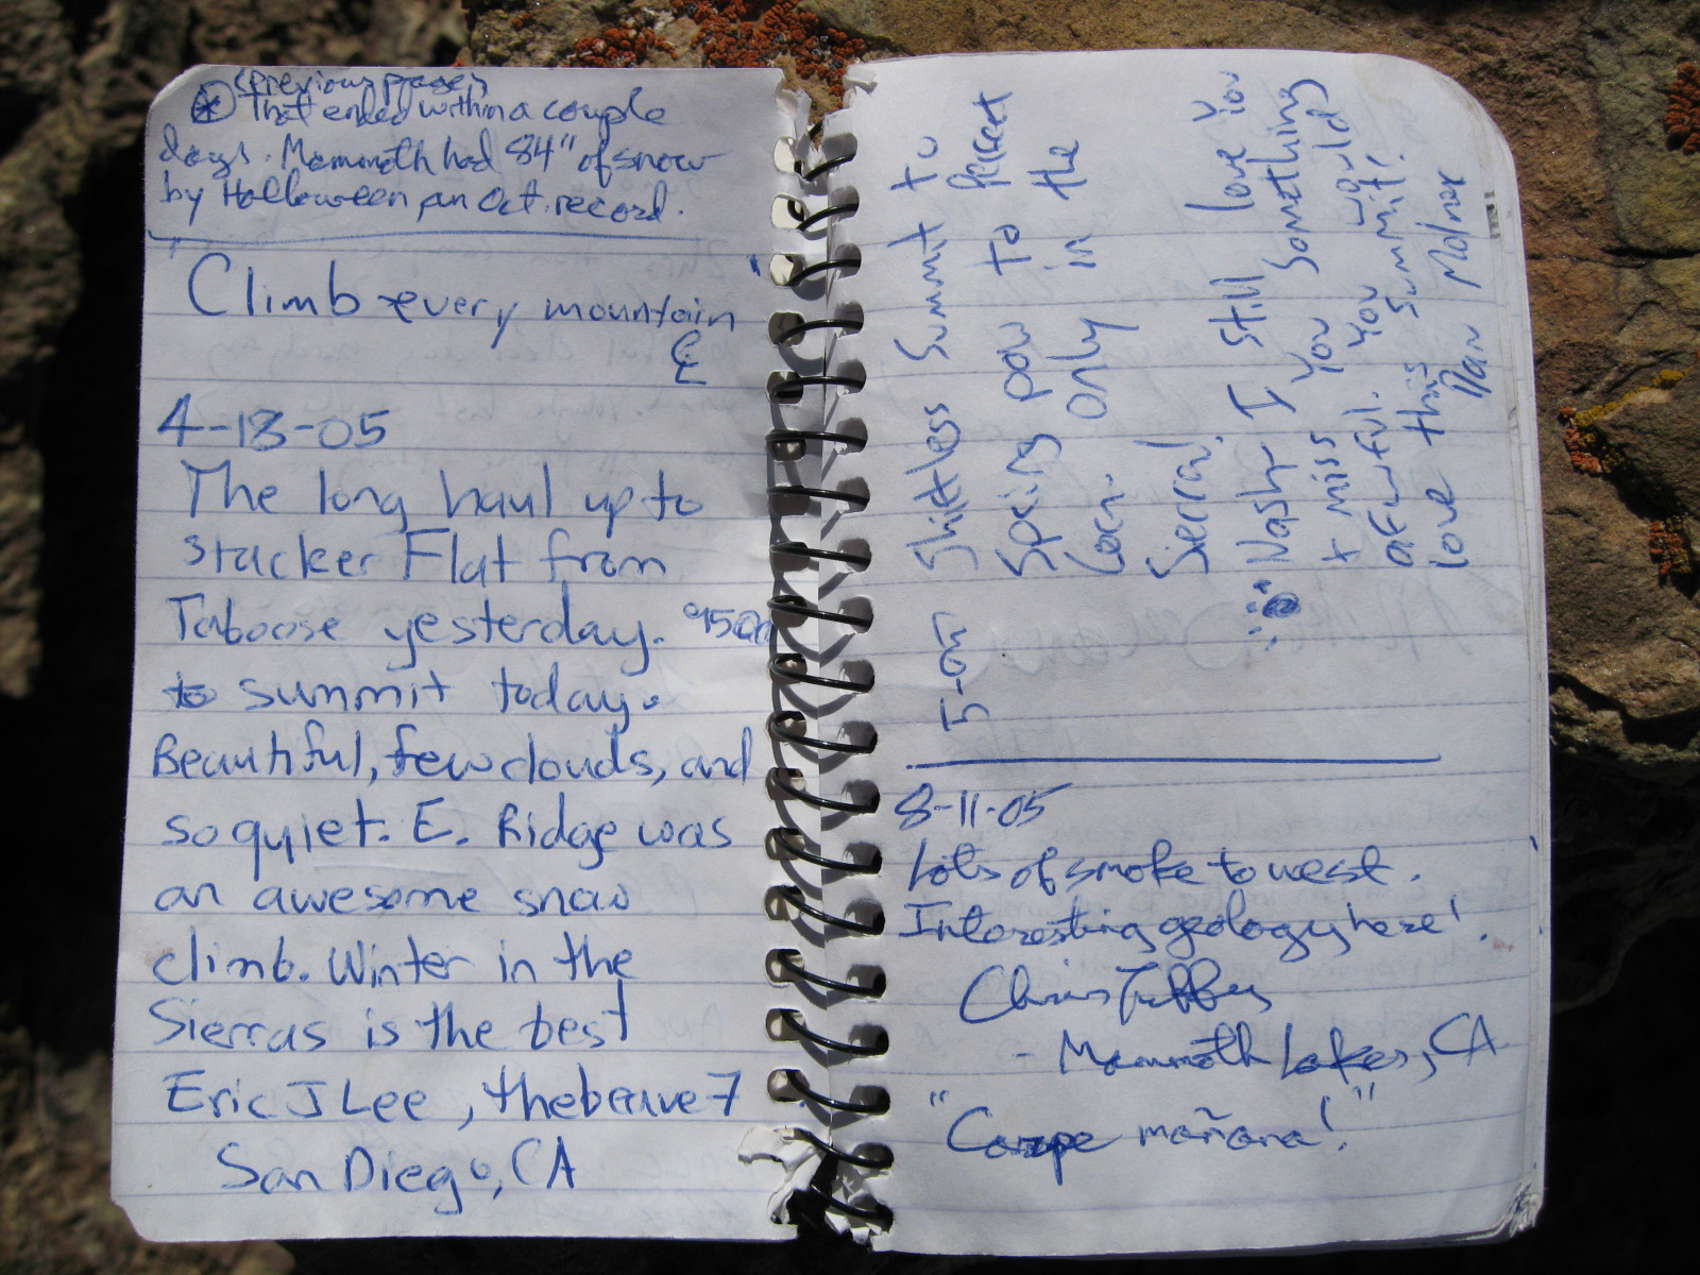 (previous page)
* That ended within a couple
days. Mammoth had 84" of snow
by Halloween an Oct. record.
"Climb every mountain"
4-18-05
The long haul up to
Stacker Flat from
Taboose yesterday. 9500
to summit today.
Beautiful, few clouds, and
so quiet. E. Ridge was
an awesome snow
climb. Winter in the
Sierras is the best
Eric J Lee, thebrave7
San Diego, CA
5-05
Shiftless Summit to
Spacing pow to Perfect
Corn. Only in the
Sierra!
Nash, I still love you
+ miss you something
awful. You would
love this summit.
Dan Molnar
8-11-05
Lots of smoke to west.
Interesting geology here!
Chris
- Mammoth Lakes, CA
"Carpe mañana!"